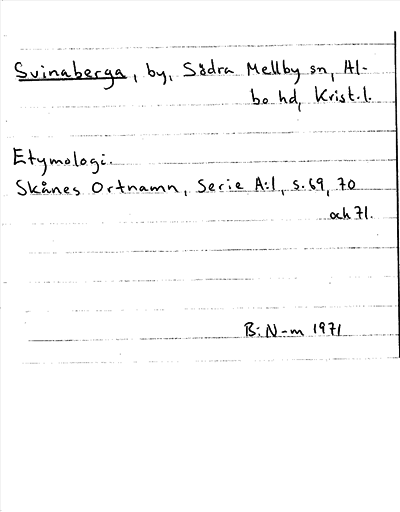 Svinaberga, by, Södra Mellby sn, Al-
bo hd, Krist.l.
Etymologi.
Skånes Ortnamn, Serie A:1, s. 69, 70
och 71.
B:N-m 1971